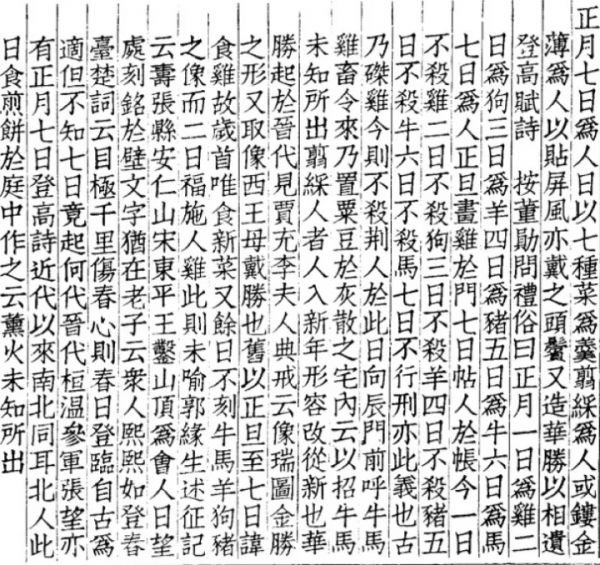 正月七日爲人日以七種菜爲羹翦綵爲人或鏤金
薄爲人以貼屏風亦戴之頭鬢又造華勝以相遺
登高賦詩　按董勛問禮俗曰正月一日爲雞二
日爲狗三日爲羊四日爲豬五日爲牛六日爲馬
七日爲人正旦畫雞於門七日帖人於帳今一日
不殺雞二日不殺狗三日不殺羊四日不殺豬五
日不殺牛六日不殺馬七日不行刑亦此義也古
乃磔雞今則不殺荆人於此日向辰門前呼牛馬
雞畜令來乃置粟豆於灰散之宅內云以招牛馬
未知所出翦綵人者人入新年形容改從新也華
勝起於晉代見賈充李夫人典戒云像瑞圖金勝
之形又取像西王母戴勝也舊以正旦至七日諱
食雞故歲首唯食新菜又餘日不刻牛馬羊狗豬
之像而二日福施人雞此則未喻郭緣生述征記
云壽張縣安仁山宋東平王鑿山頂爲會人日望
處刻銘於壁文字猶在老子云衆人熙熙如登春
臺楚詞云目極千里傷春心則春日登臨自古爲
適但不知七日竟起何代晉代桓溫參軍張望亦
有正月七日登高詩近代以來南北同耳北人此
日食煎餅於庭中作之云薰火未知所出